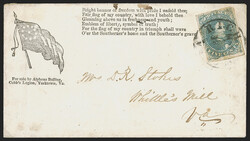 Bright banner of freedom with pride I unfurl thee;
Fair flag of my country, with love I behold thee
Gleaming above us in freshness and youth;
Emblem of liberty, symbol of truth;
For the flag of my country in triumph shall wave
O'er the Southerner's home and the Southerner's grave.
For sale by
Cobb's Legion, Yorktown, Va.
Mrs D. K. Stokes
Whittle's Mill
Va